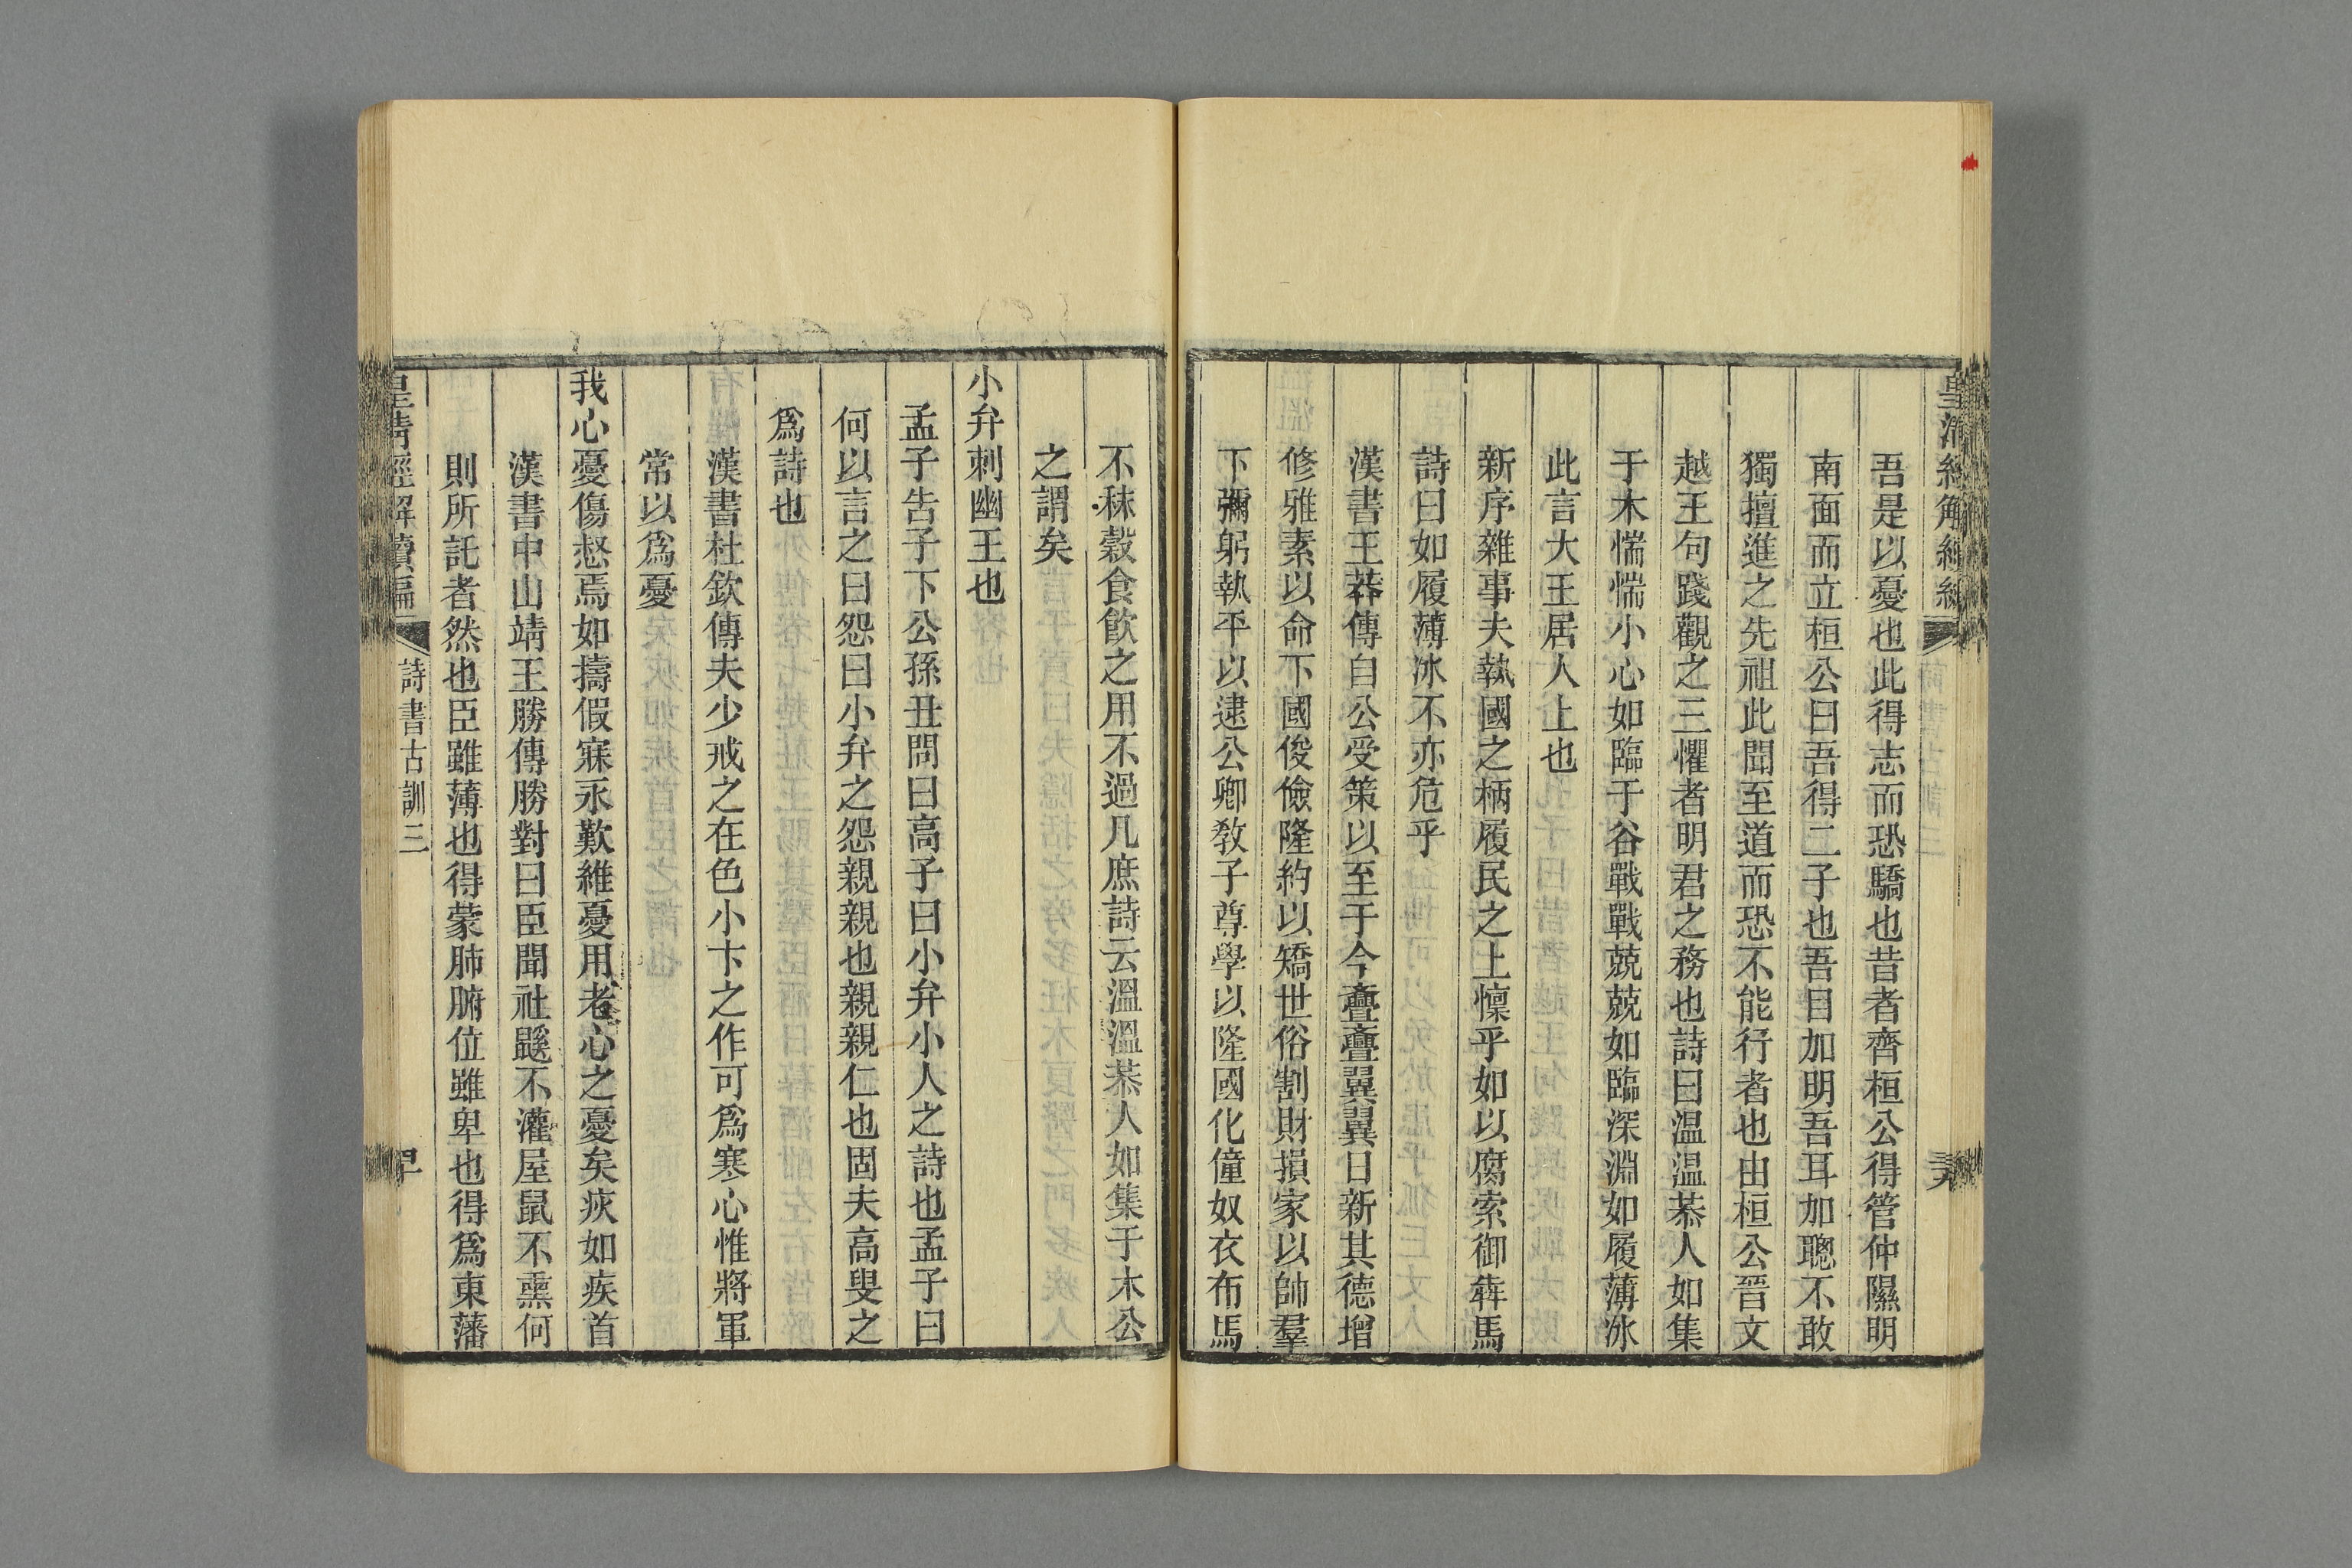 吾是以憂也此得志而恐驕也昔者齊桓公得管仲隰明
南面而立桓公曰吾得二子也吾目加明吾耳加聰不敢
獨擅進之先祖此聞至道而恐不能行者也由桓公晉文
越王句踐觀之三懼者明君之務也詩曰温温恭人如集
于木惴惴小心如臨于谷戰戰兢兢如臨深淵如履薄冰
此言大王居人上也
新序雜事夫執國之柄履民之上懍乎如以腐索御犇馬
詩曰如履薄冰不亦危乎
漢書王莽傳自公受策以至于今亹亹翼翼日新其德增
修雅素以命下國俊儉隆約以矯世俗割財損家以帥羣
下彌躬執平以逮公卿教子尊學以隆國化僮奴衣布馬
不秣穀食飲之用不過凡庶詩云溫溫恭人如集于木公
之謂矣
小弁刺幽王也
孟子告子下公孫丑問曰高子曰小弁小人之詩也孟子曰
何以言之曰怨曰小弁之怨親親也親親仁也固夫高叟之
爲詩也
漢書杜欽傳夫少戒之在色小卞之作可爲寒心惟將軍
常以爲憂
我心憂傷惄焉如擣假寐永歎維憂用老心之憂矣疢如疾首
漢書中山靖王勝傳勝對曰臣聞社鼷不灌屋鼠不熏何
則所託者然也臣雖薄也得蒙肺腑位雖卑也得爲東藩
皇清經解續編
詩書古訓三